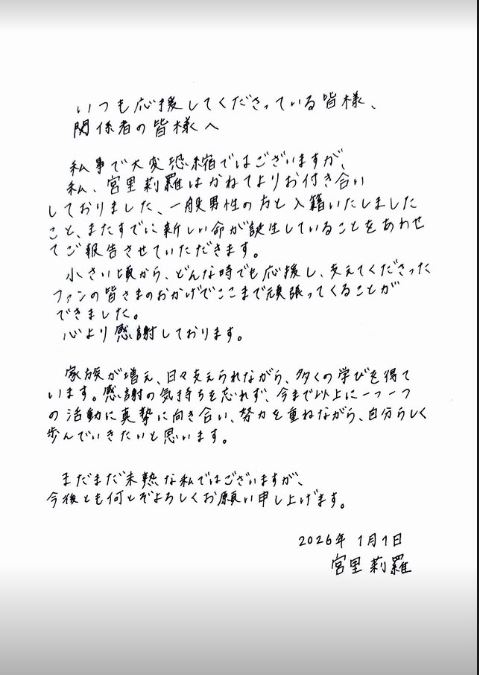 いつも応援してくださっている皆様、
関係者の皆様へ
私事で大変恐縮ではございますが、
私、宮里莉羅はかねてよりお付き合い
しておりました、一般男性の方と入籍いたしました
こと、またすでに新しい命が誕生していることをあわせ
てご報告させていただきます。
小さい頃から、どんな時でも応援し、支えてくださった
ファンの皆さまのおかげでここまで頑張ってくることが
できました。
心より感謝しております。
家族が増え、日々支えられながら、多くの学びを得て
います。感謝の気持ちを忘れず、今まで以上に一つ一つ
の活動に真摯に向き合い、努力を重ねながら、自分らしく
歩んでいきたいと思います。
まだまだ未熟な私ではございますが、
今後とも何とぞよろしくお願い申し上げます。
2026年 1月1日
宮里莉羅